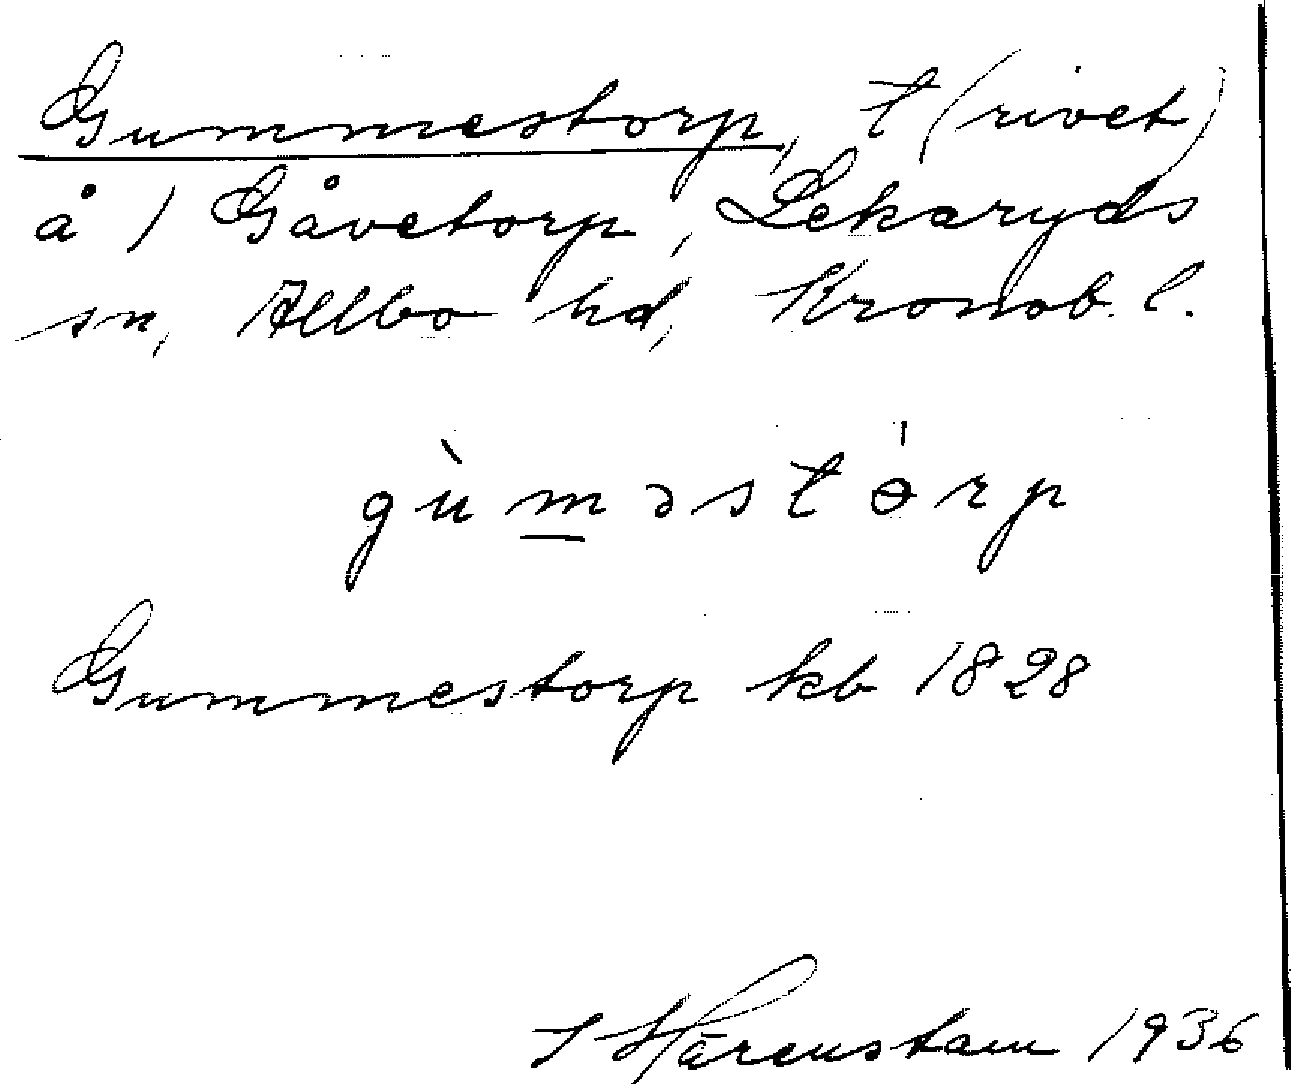 Gummestorp, t (rivet)
å 1 Gåvetorp, Lekaryds
sn, Allbo hd, Kronob. l.
gùməstɵ́rp
Gummestorp kb 1828
Härenstam 1936